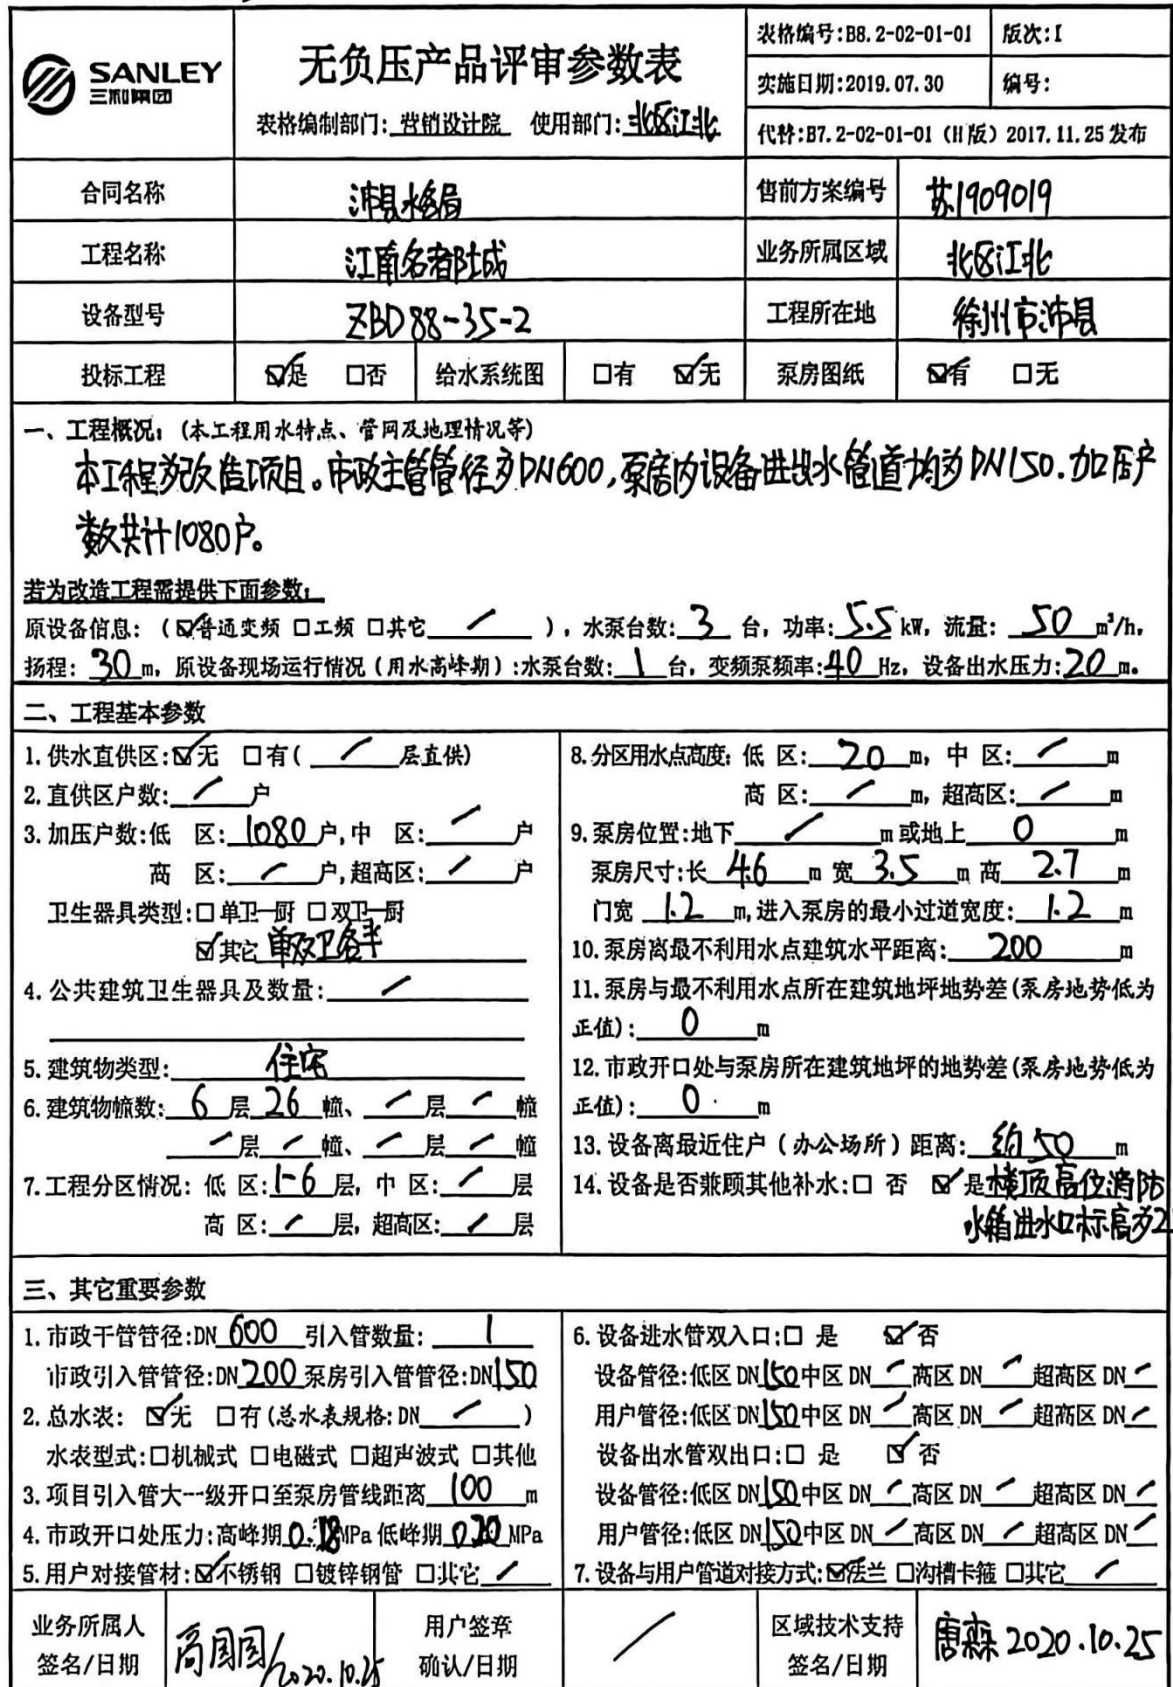 SANLEY
三利集团
无负压产品评审参数表
表格编制部门: 营销设计院 使用部门: 北区江北
表格编号:B8.2-02-01-01 版次:I
实施日期:2019.07.30 编号:
代替:B7.2-02-01-01 (H版) 2017.11.25 发布
合同名称 沛县水务局 售前方案编号 苏1909019
工程名称 江南名都 业务所属区域 北区江北
设备型号 ZBD88-35-2 工程所在地 徐州市沛县
投标工程 ☑是 □否 给水系统图 □有 ☑无 泵房图纸 ☑有 □无
一、工程概况: (本工程用水特点、管网及地理情况等)
本工程为改造项目。市政主管管径为DN600,泵房内设备进出水管道均为DN150.加压户
数共计1080户。
若为改造工程需提供下面参数:
原设备信息: (☑普通变频 □工频 □其它 / ), 水泵台数: 3 台, 功率: 5.5 kW, 流量: 50 m³/h,
扬程: 30 m, 原设备现场运行情况 (用水高峰期) :水泵台数: 1 台, 变频泵频率: 40 Hz, 设备出水压力: 20 m。
二、工程基本参数
1. 供水直供区:☑无 □有( / 层直供)
2. 直供区户数: / 户
3. 加压户数:低 区: 1080 户,中 区: / 户
高 区: / 户,超高区: / 户
卫生器具类型:□单卫一厨 □双卫一厨
☑其它 单双卫各半
4. 公共建筑卫生器具及数量: /
5. 建筑物类型: 住宅
6. 建筑物幢数: 6 层 26 幢、 / 层 / 幢
/ 层 / 幢、 / 层 / 幢
7. 工程分区情况: 低 区: 1-6 层, 中 区: / 层
高 区: / 层, 超高区: / 层
8. 分区用水点高度: 低 区: 20 m, 中 区: / m
高 区: / m, 超高区: / m
9. 泵房位置:地下 / m 或地上 0 m
泵房尺寸:长 4.6 m 宽 3.5 m 高 2.7 m
门宽 1.2 m,进入泵房的最小过道宽度: 1.2 m
10. 泵房离最不利用水点建筑水平距离: 200 m
11. 泵房与最不利用水点所在建筑地坪地势差(泵房地势低为
正值): 0 m
12. 市政开口处与泵房所在建筑地坪的地势差(泵房地势低为
正值): 0 m
13. 设备离最近住户 ( 办公场所 ) 距离: 约50 m
14. 设备是否兼顾其他补水:□ 否 ☑ 是 楼顶高位消防
水箱进水口标高为2
三、其它重要参数
1. 市政干管管径:DN 600 引入管数量: 1
市政引入管管径:DN 200 泵房引入管管径:DN 150
2. 总水表: ☑无 □有(总水表规格:DN / )
水表型式:□机械式 □电磁式 □超声波式 □其他
3. 项目引入管大一级开口至泵房管线距离 100 m
4. 市政开口处压力:高峰期 0.18 MPa 低峰期 0.20 MPa
5. 用户对接管材:☑不锈钢 □镀锌钢管 □其它 /
6. 设备进水管双入口:□ 是 ☑否
设备管径:低区 DN 150 中区 DN / 高区 DN / 超高区 DN /
用户管径:低区 DN 150 中区 DN / 高区 DN / 超高区 DN /
设备出水管双出口:□ 是 ☑否
设备管径:低区 DN 150 中区 DN / 高区 DN / 超高区 DN /
用户管径:低区 DN 150 中区 DN / 高区 DN / 超高区 DN /
7. 设备与用户管道对接方式:☑法兰 □沟槽卡箍 □其它 /
业务所属人
签名/日期
高园园/2020.10.25
用户签章
确认/日期
/
区域技术支持
签名/日期
唐森 2020.10.25